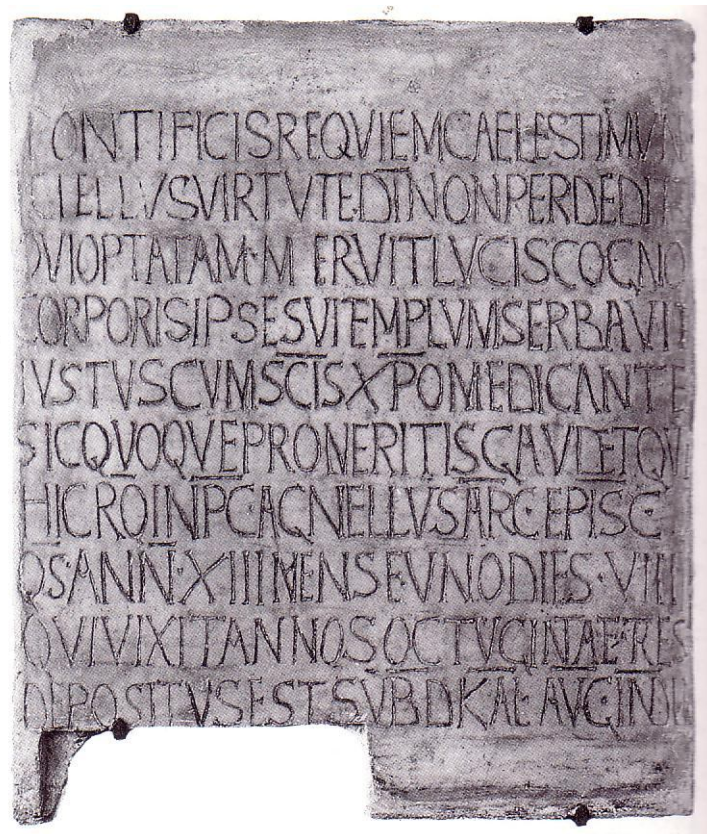 PONTIFICISREQVIEMCAELESTIMVN
CIELLVSVIRTVTEDINONPERDEDI
QVIOPTATAM·MERVITLVCISCOGNO
CORPORISIPSESVITEMPLVMSERBAVIT
IVSTVSCVMSCISXPOMEDICANTE
SICQVOQVEPRONERITISGAVDETQVE
HICROINPCAGNELLVSARCEPISC·
QS·ANN·XIIIMENSEVNODIES·VIII
QVIVIXITANNOSOCTVGINAERES
DEPOSITVSESTSVBDKAL·AVG·IND